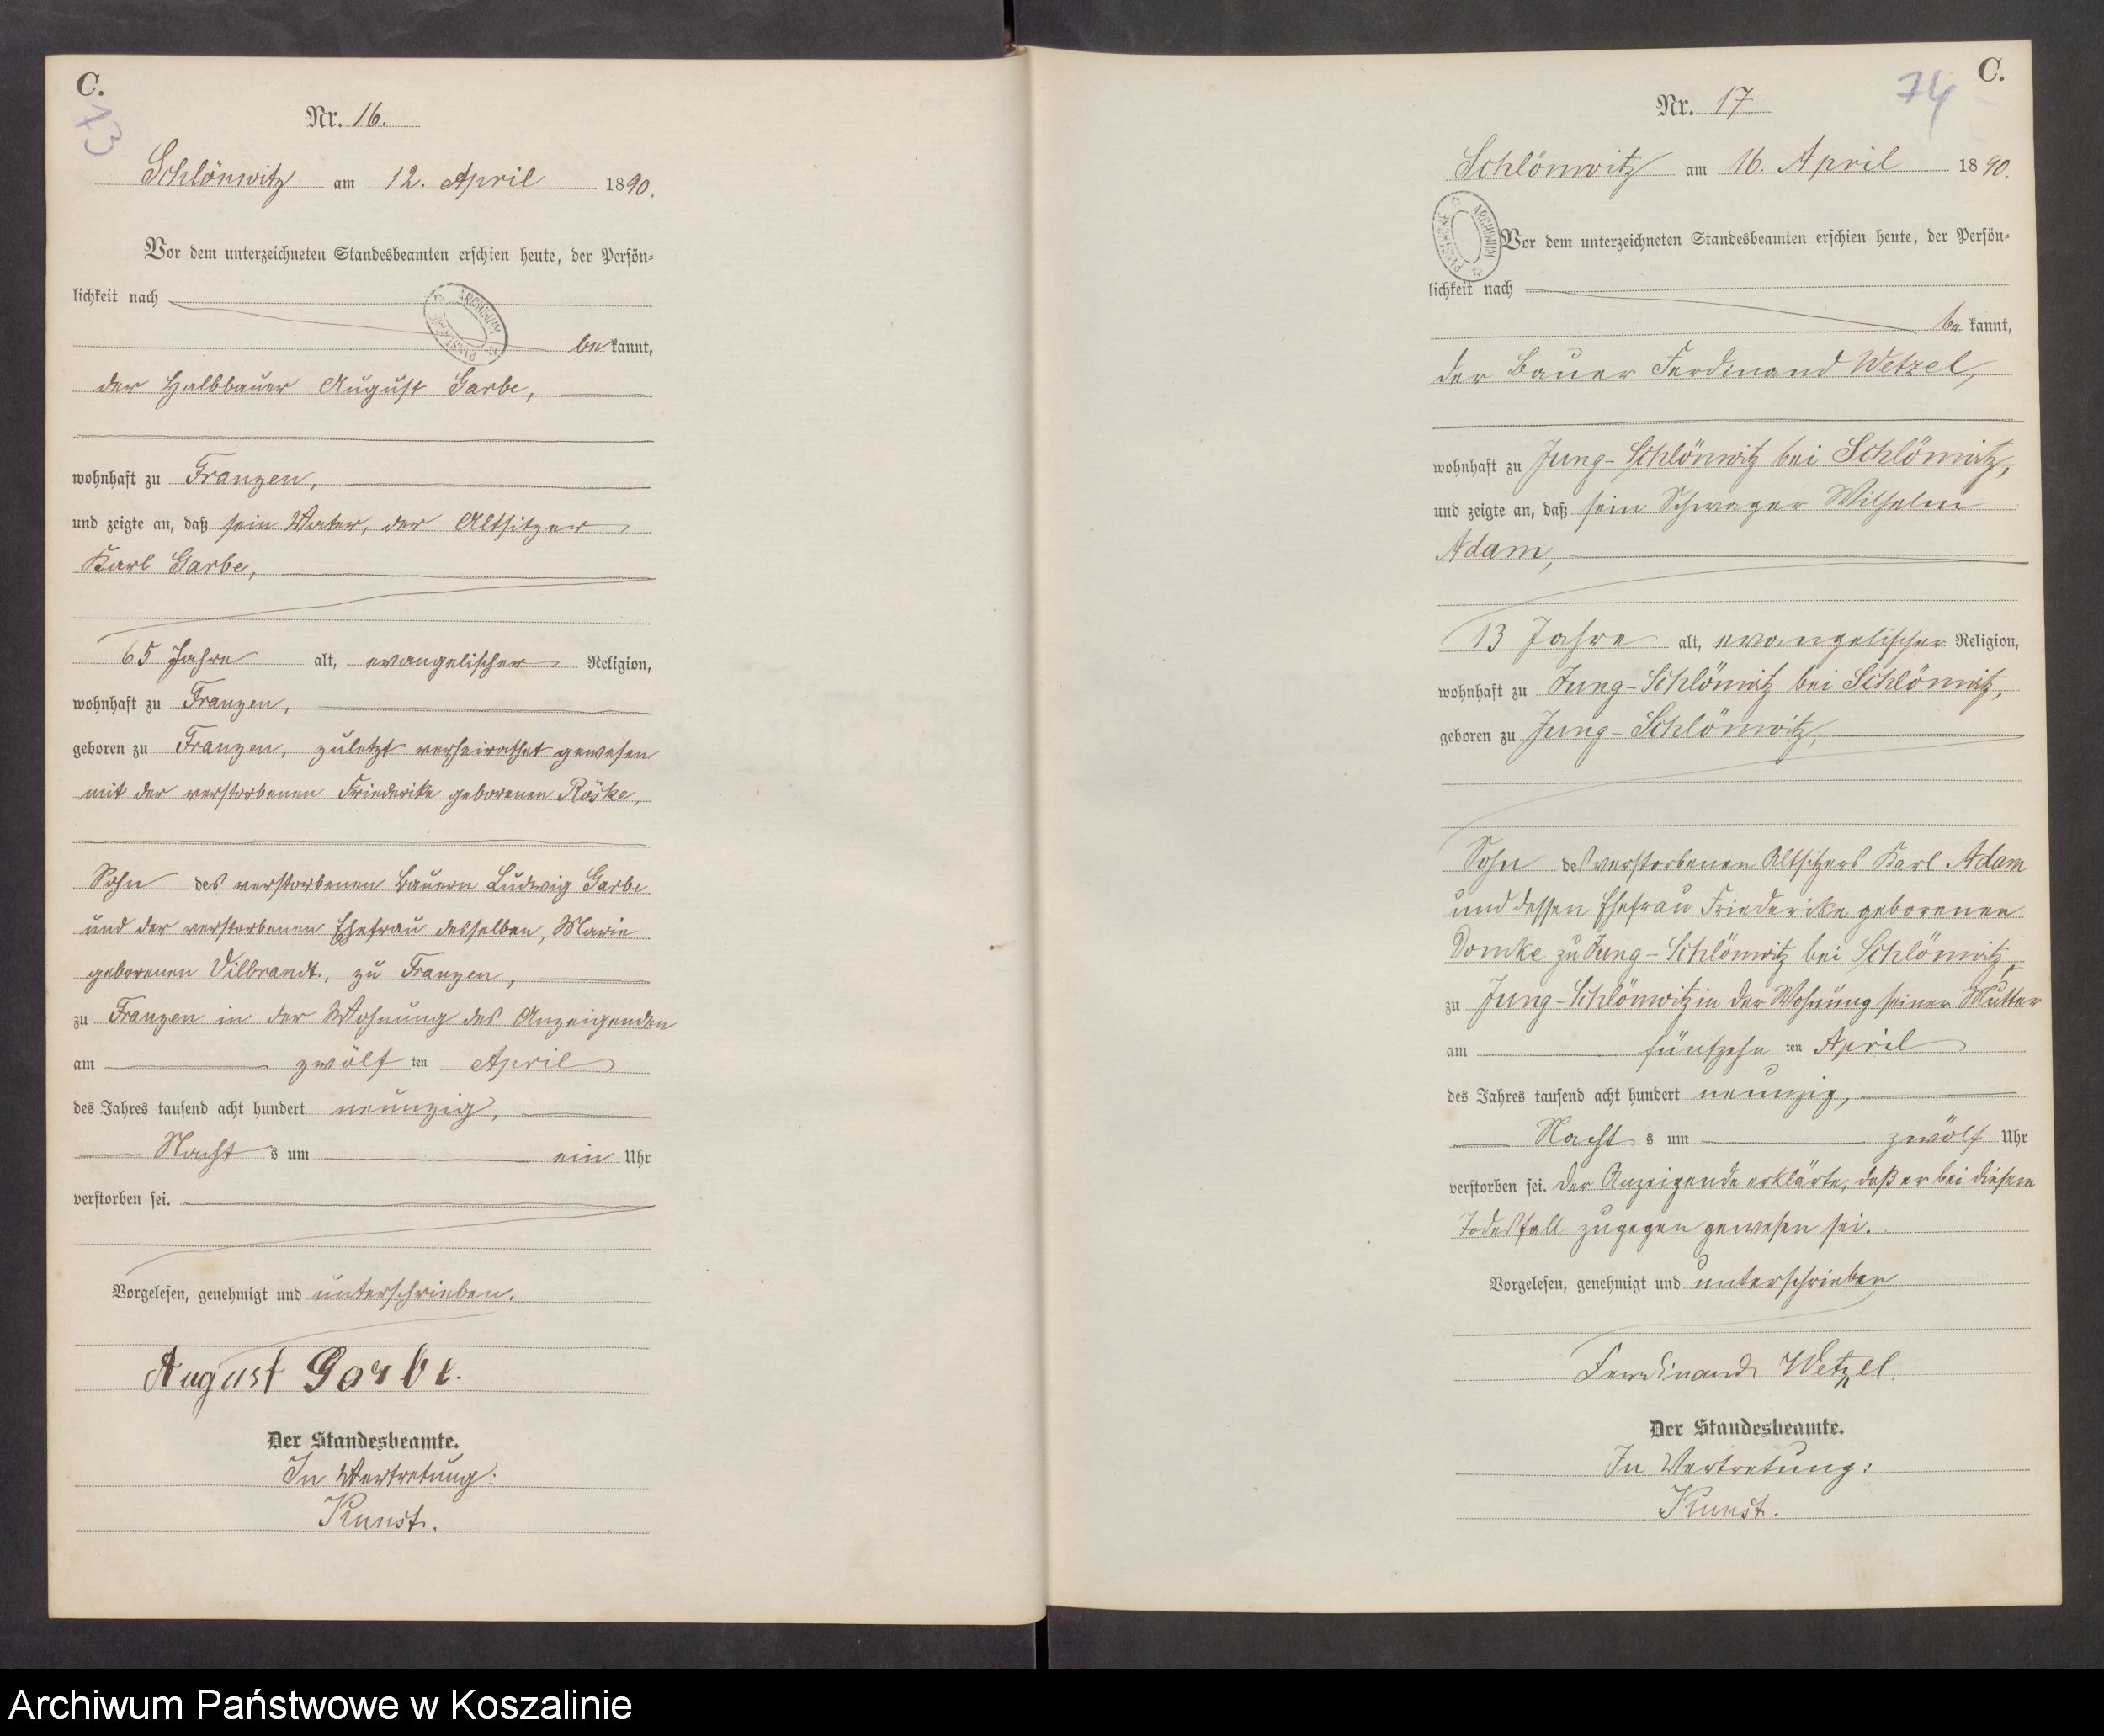 C.
73
Nr. 16.
Schlönwitz am 12. April 1890.
Vor dem unterzeichneten Standesbeamten erschien heute, der Persön-
lichkeit nach
bekannt,
der Halbbauer August Garbe,
wohnhaft zu Franzen,
und zeigte an, daß sein Vater, der Altsitzer
Karl Garbe,
65 Jahre alt, evangelischer Religion,
wohnhaft zu Franzen,
geboren zu Franzen, zuletzt verheirathet gewesen
mit der verstorbenen Friederike geborenen Röske,
Sohn des verstorbenen Bauern Ludwig Garbe
und der verstorbenen Ehefrau desselben, Marie
geborenen Vilbrandt, zu Franzen,
zu Franzen in der Wohnung des Anzeigenden
am zwölf ten April
des Jahres tausend acht hundert neunzig,
Nacht s um ein Uhr
verstorben sei.
Vorgelesen, genehmigt und unterschrieben.
August Garbe.
Der Standesbeamte.
In Vertretung:
Kunst.
C.
74
Nr. 17.
Schlönwitz am 16. April 1890.
ARCHIWUM PAŃSTWOWE
Vor dem unterzeichneten Standesbeamten erschien heute, der Persön-
lichkeit nach
bekannt,
der Bauer Ferdinand Wetzel,
wohnhaft zu Jung-Schlönwitz bei Schlönwitz,
und zeigte an, daß sein Schwager Wilhelm
Adam,
13 Jahre alt, evangelischer Religion,
wohnhaft zu Jung-Schlönwitz bei Schlönwitz,
geboren zu Jung-Schlönwitz,
Sohn des verstorbenen Altsitzers Karl Adam
und dessen Ehefrau Friederike geborenen
Domke zu Jung-Schlönwitz bei Schlönwitz,
zu Jung-Schlönwitz in der Wohnung seiner Mutter
am fünfzehn ten April
des Jahres tausend acht hundert neunzig,
Nacht s um zwölf Uhr
verstorben sei. Der Anzeigende erklärte, daß er bei diesem
Todesfall zugegen gewesen sei.
Vorgelesen, genehmigt und unterschrieben
Ferdinand Wetzel.
Der Standesbeamte.
In Vertretung:
Kunst.
Archiwum Państwowe w Koszalinie